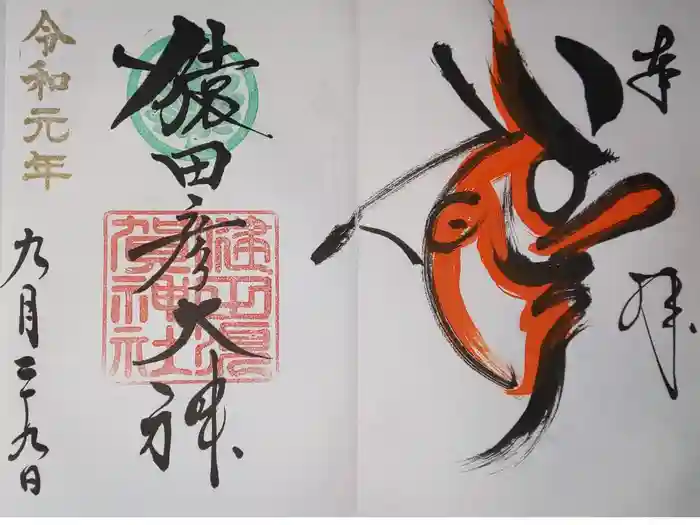 奉拝
猿田彦大神
賀神社
令和元年
九月二十九日